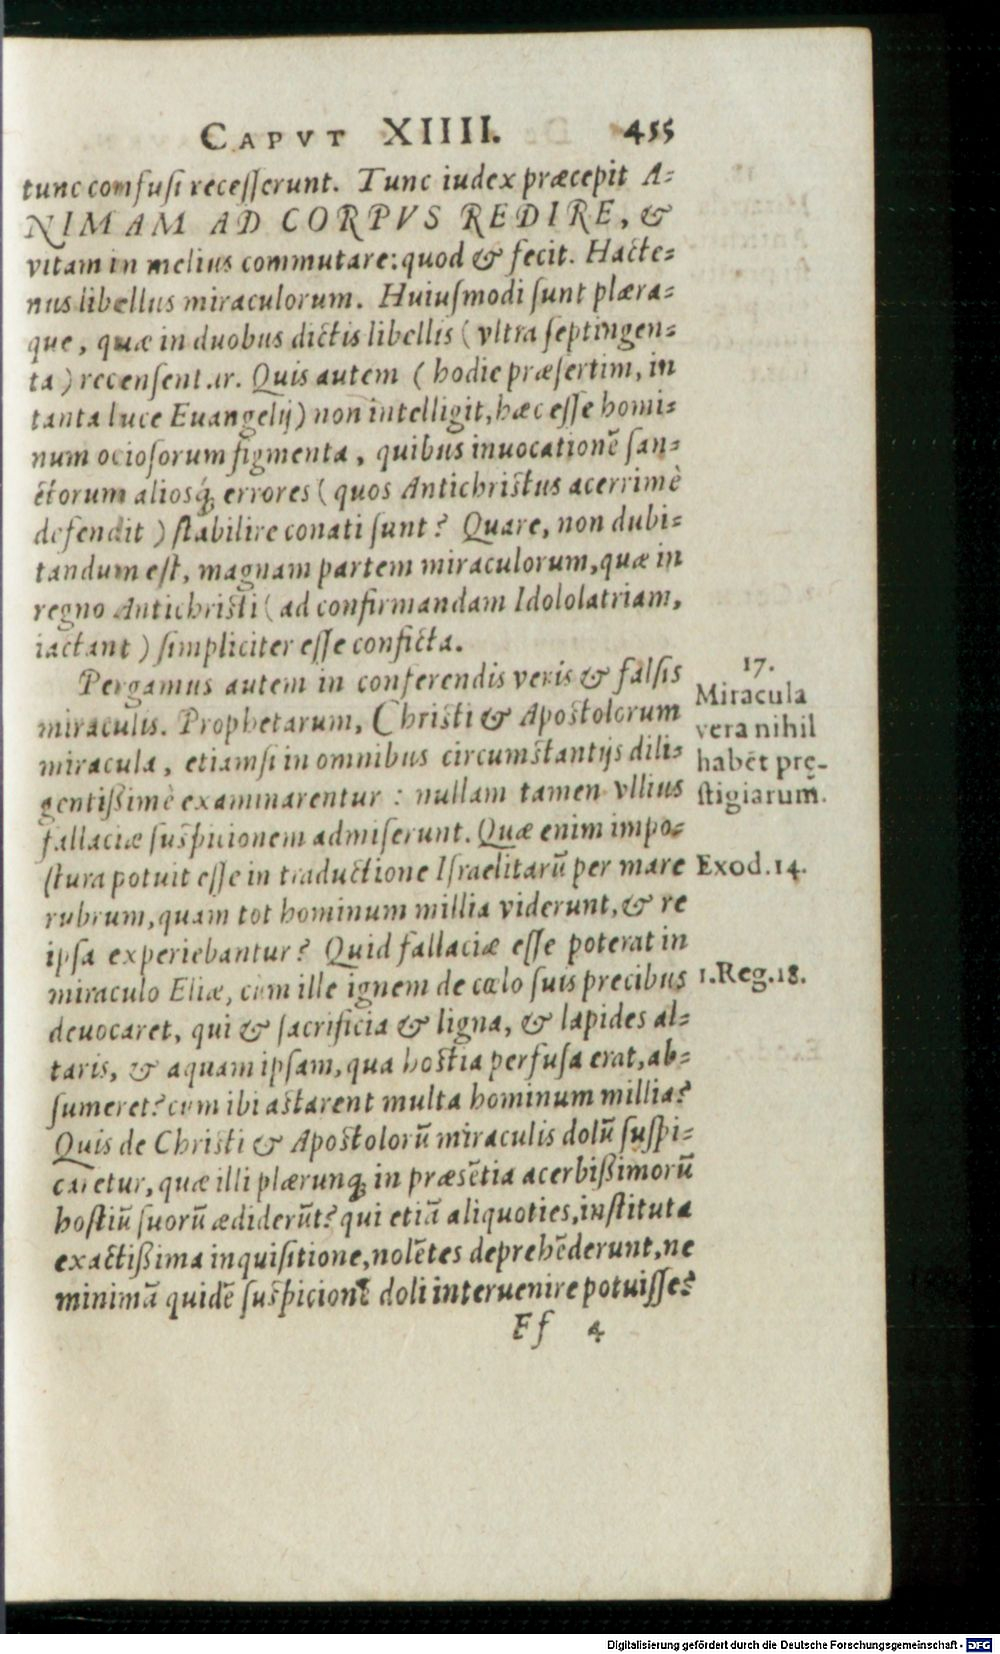 CAPVT XIIII. 455
tunc comfusi recesserunt. Tunc iudex præcepit A=
NIMAM AD CORPVS REDIRE, &
vitam in melius commutare: quod & fecit. Hacte=
nus libellus miraculorum. Huiusmodi sunt plæra=
que, quæ in duobus dictis libellis (vltra septingen=
ta) recensentur. Quis autem (hodie præsertim, in
tanta luce Euangelij) non intelligit, hæc esse homi=
num ociosorum figmenta, quibus inuocationē san=
ctorum aliosq́; errores (quos Antichristus acerrimè
defendit) stabilire conati sunt? Quare, non dubi=
tandum est, magnam partem miraculorum, quæ in
regno Antichristi (ad confirmandam Idololatriam,
iactant) simpliciter esse conficta.
Pergamus autem in conferendis veris & falsis
miraculis. Prophetarum, Christi & Apostolorum
miracula, etiamsi in omnibus circumstantijs dili=
gentißimè examinarentur: nullam tamen vllius
fallaciæ suspicionem admiserunt. Quæ enim impo=
stura potuit esse in traductione Israelitarū per mare
rubrum, quam tot hominum millia viderunt, & re
ipsa experiebantur? Quid fallaciæ esse poterat in
miraculo Eliæ, cum ille ignem de cœlo suis precibus
deuocaret, qui & sacrificia & ligna, & lapides al=
taris, & aquam ipsam, qua hostia perfusa erat, ab=
sumeret? cum ibi astarent multa hominum millia?
Quis de Christi & Apostolorū miraculis dolū suspi=
caretur, quæ illi plærunq; in præsētia acerbißimorū
hostiū suorū ædiderūt? qui etiā aliquoties, instituta
exactißima inquisitione, nolētes deprehēderunt, ne
minimā quidē suspicionē doli interuenire potuisse?
Ff 4
17.
Miracula
vera nihil
habēt pre-
stigiarum.
Exod. 14.
1. Reg. 18.
Digitalisierung gefördert durch die Deutsche Forschungsgemeinschaft - DFG